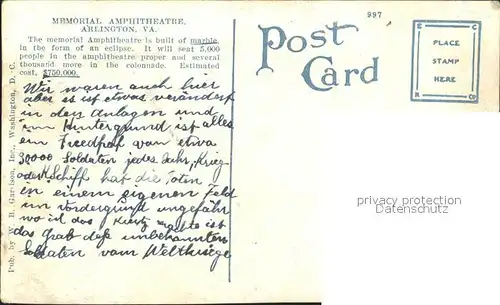 MEMORIAL AMPHITHEATRE,
ARLINGTON, VA.
The memorial Amphitheatre is built of marble,
in the form of an eclipse. It will seat 5,000
people in the amphitheatre proper and several
thousand more in the colonnade. Estimated
cost, $750,000.
997
Post
Card
E C
PLACE
STAMP
HERE
K CO
Pub. by W. B. Garrison, Inc., Washington, D. C.
Wir waren auch hier
aber es ist etwas verändert
in den Anlagen und
im Huntergrund ist alles
ein Friedhof von etwa
30000 Soldaten jedes Jahr, Krieg
oder Schiff hat die Toten
in einem eigenen Feld
im Vordergrund ungefähr
wo ist das Kreutz ist
das Grab des unbekannten
Soldaten vom Weltkriege
privacy protection
Datenschutz